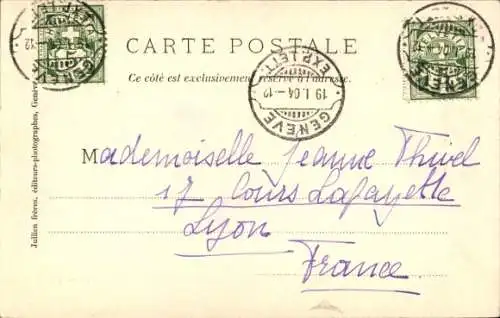 CARTE POSTALE
Ce côté est exclusivement réservé à l'adresse.
GENÈVE
EXP. LETT.
19 I. 04 - 12
Mademoiselle Jeanne Thivel
17 Cours Lafayette
Lyon
France
Jullien frères, éditeurs-photographes, Genève